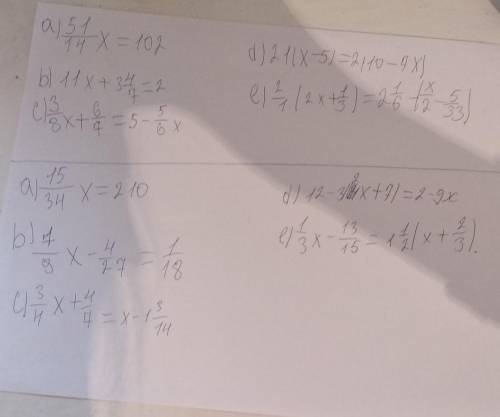 a) 51/14 x = 102
b) 11x + 3 4/7 = 2
c) 3/8 x + 6/7 = 5 - 5/6 x
d) 21(x-5) = 2(10-9x)
e) 2/1 (2x + 1/3) = 2 1/6 + (x/2 - 5/33)
a) 15/34 x = 210
b) 7/9 x - 4/27 = 1/18
c) 3/4 x + 4/7 = x - 1 3/14
d) 12-3(2x+7) = 2-9x
e) 1/3 x - 13/15 = 1 1/2 (x + 2/3).